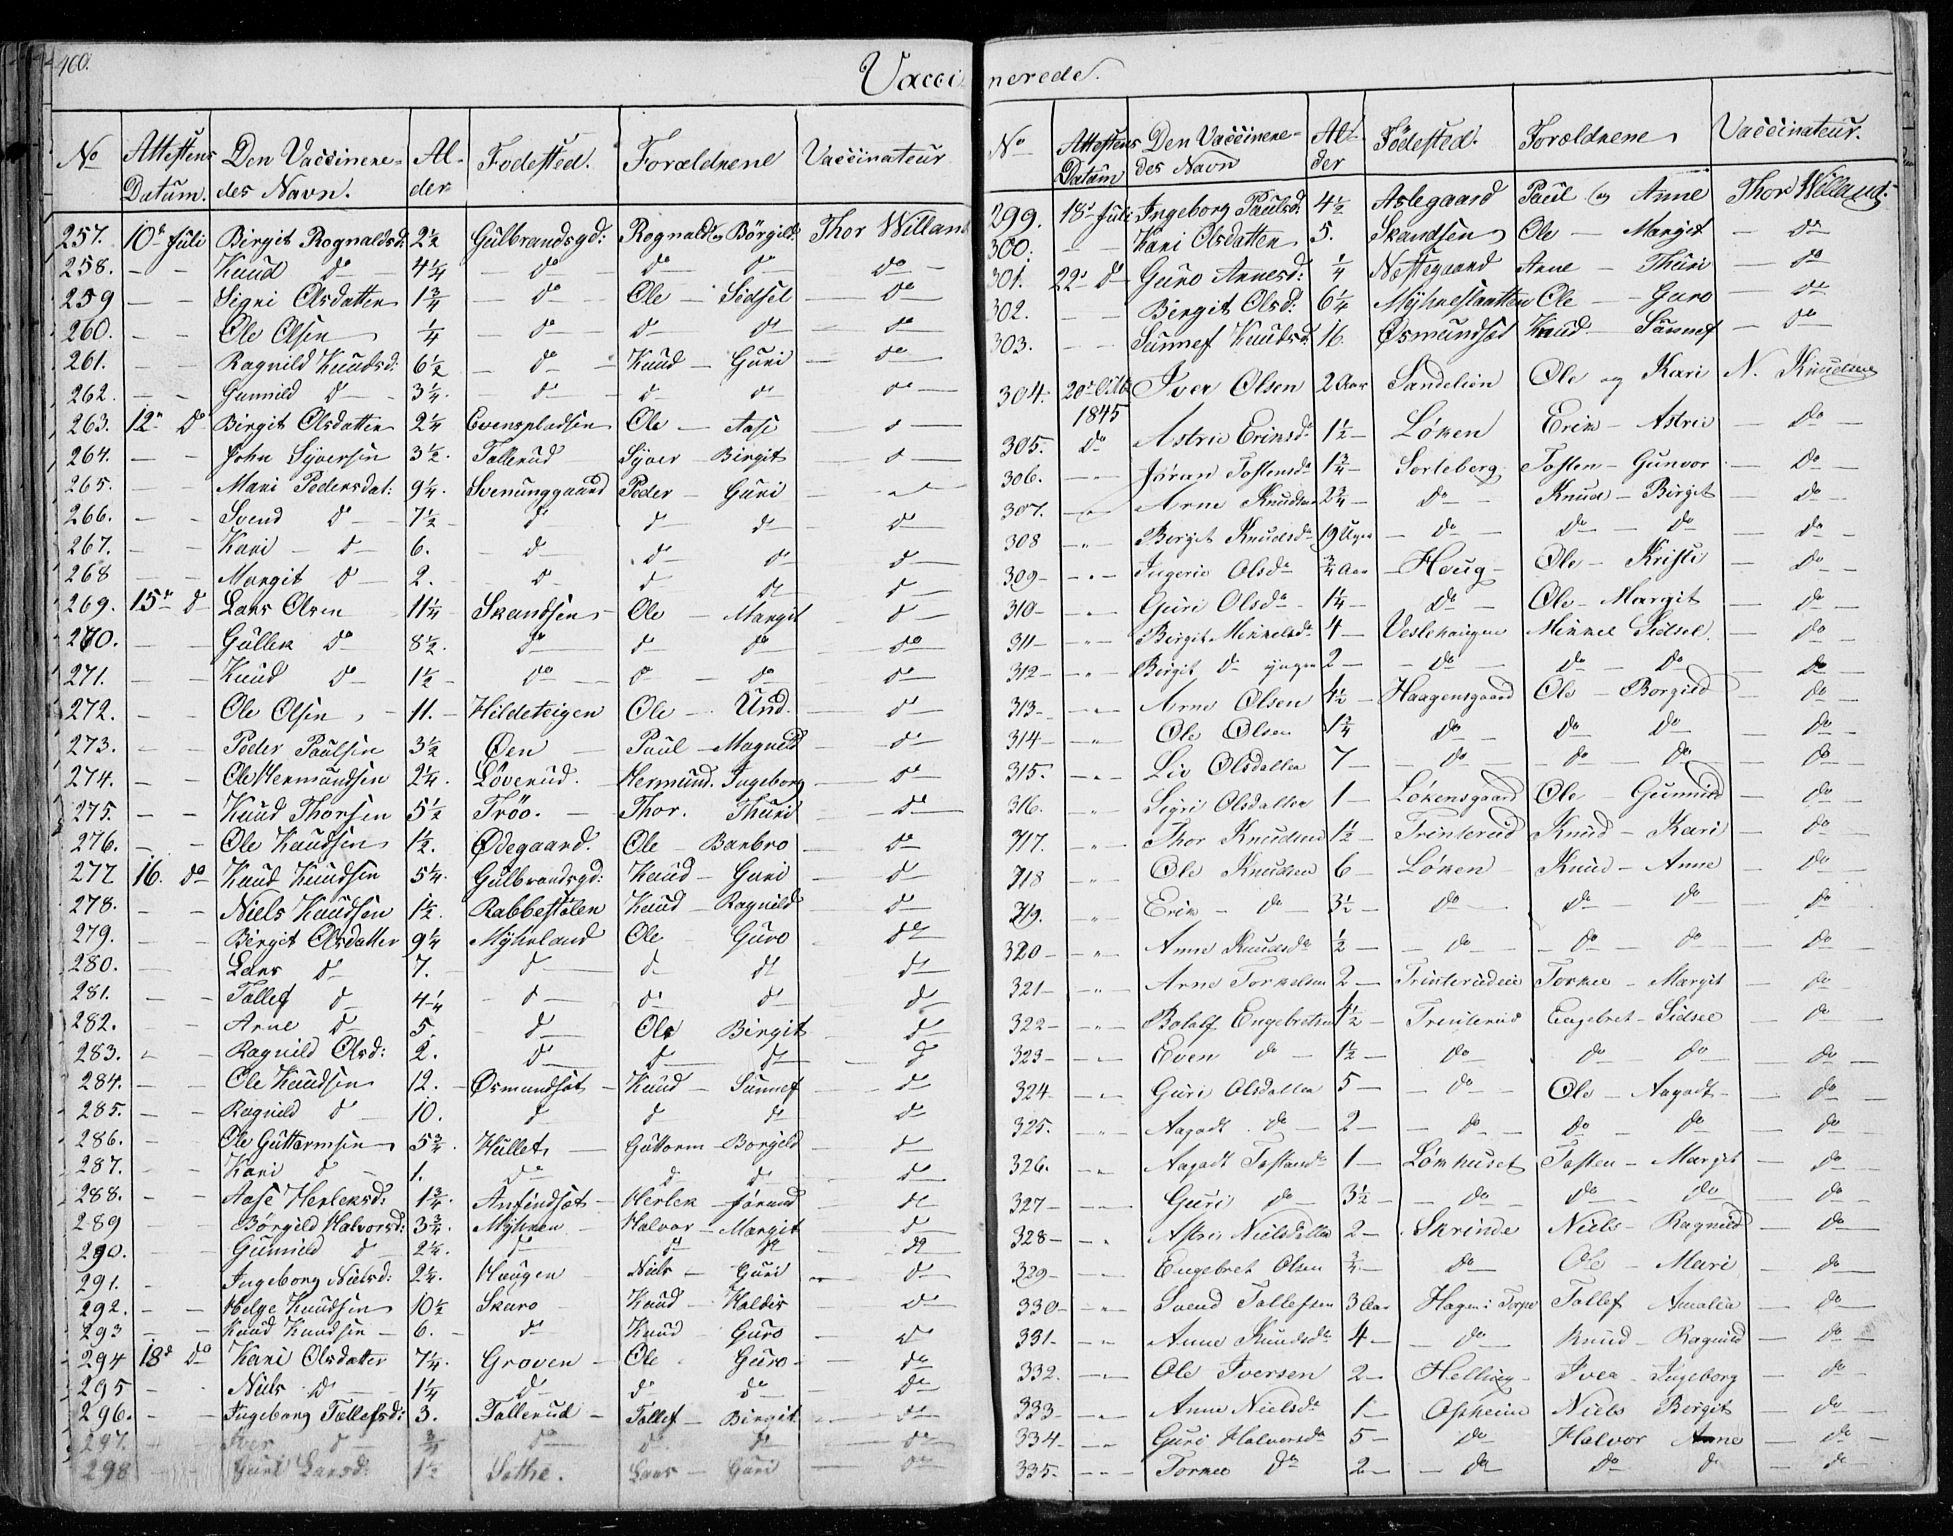 400.
Vaccinerede.
No Attestens Datum. Den Vaccinere- des Navn. Al- der Fødested. Forældrene Vaccinateur
257. 10de Juli Birgit Rognaldsd: 2½ Gulbrandsgd: Rognald og Børgild Thor Willand
258. – – Knud do 4¼ – do – do do do –
259 – – Sigri Olsdatter 1¾ – do Ole – Sidsel – do
260. – – Ole Olsen ¼ – do – do do – do
261. – – Ragnild Knudsd: 6½ – do – Knud – Guri – do
262. – – Gunnild do 3¼. – do – do do – do –
263. 12te do Birgit Olsdatter 2¼ Evenspladsen Ole – Aase – do –
264. – – John Syversen 3½. Tollerud Syver – Birgit – do –
265. – – Mari Pedersdat: 9¼. Svenunggaard Peder – Guri – do
266. – – Svend do – 7½ – do do do – do
267. – – Kari – do – 6. – do do do – do
268 – – Margit do – 2. – do do do – do
269. 15de do Lars Olsen – 11¼ – Skandsen – Ole – Margit – do
270. – – Gullek do 8½. – do – do do – do
271. – – Knud do 1½ – do – do – do – do
272. – – Ole Olsen – 11. – Hildeteigen Ole – Und. – do
273. – – Peder Paulsen 3½ Øen – Paul – Magnild – do
274. – – Ole Hermundsen 2¼. Løverud. Hermund. Ingeborg – do
275. – – Knud Thorsen 5½ Trøo. – Thor. Thuri – do
276. – – Ole Knudsen 1½. Ødegaard. Ole – Barbro – do
277 16. do Knud Knudsen 5¼. Gulbrandsgd: Knud – Guri – do
278. – – Niels Knudsen 1½. Rabbestølen Knud – Ragnild do
279. – – Birgit Olsdatter 9¼ – Myhrland – Ole – Guro – do
280. – Lars do 7. – do – do do – do
281. – – Tollef do 4¼ – do – do do – do
282. – – Arne do 5. – do – Ole Birgit – do
283. – – Ragnild Olsd: 2. do – do do – do
284. – – Ole Knudsen 12. – Øsmundset – Knud – Sunnef – do
285. – – Ragnild do 10. do do do – do
286. – Ole Guttormsen 5¾. Hullet Guttorm – Borgild – do
287. – – Kari do – 1. do – do do – do
288. – – Aase Herleksd: 1¾. Anfindset – Herlek – Jørand – do
289 – – Børgild Halvorsd: 3¾. Myhren – Halvor – Margit do
290. – – Gunnild do – 2¼. do – do do – do
291. – Ingeborg Nielsd: 2¼. Haugen – Niels – Guri – do
292. – – Helge Knudsen 10½ Skaro – Knud – Haldis – do
293 – – Knud Knudsen – 6. – do – Knud – Guro – do
294 18de do Kari Olsdatter 7¼. Groven – Ole – Guro – do
295 – – Niels do – 1¼ do – do – do – do
296. – – Ingeborg Tollefsd: 3. Tollerud – Tollef – Birgit. – do
297. – – Iver do – ¾ do do – do – do
298 Guri Larsd: 1½ Sethe. Lars – Guri – do
No Attestens Datum Den Vaccinere- des Navn Al- der Fødested. Forældrene Vaccinateur.
299. 18de Juli Ingeborg Paulsd: 4½ Aslegaard Paul og Anne Thor Willand.
300. – – Kari Olsdatter 5. Skandsen Ole – Margit – do
301. 22de do Guro Arnesd: ¼ Nottegaard Arne – Thuri – do
302. – – Birgit Olsd: 6¼ Myhreslaatten Ole – Guro – do
303. – – Sunnef Knudsd: 16. Øsmundset Knud – Sunnef – do
304. 20de Octb 1845 Iver Olsen 2 Aar Sandelien Ole og Kari N. Knudsen
305. do Astrie Eriksdr 1½ – Løken Erik – Astrie – do –
306. – Jøran Tostensdr 1¾ – Sorteberg Tosten – Gunvor – do –
307. – Arne Knudsen 2¾ – do – Knud – Birgit do –
308 – Birgit Knudsdr 19 Uger – do – do – do – do –
309 – Ingerie Olsdr ¾ Aar – Haug – Ole – Kristi – do –
310 – Guri Olsdr – 1¼ – do – Ole – Margit – do –
311 – Birgit Mikkelsdr 4 – Veslehaugen Mikkel Sidsel. – do –
312 – Birgit do yngre 2 – – do – do – do – do
313 – Arne Olsen 4½ – Haagensgaard Ole – Borgild – do –
314 – Ole Olsen 1¾ do – do do – do –
315. – Liv Olsdatter 7 – – do – do – do – do –
316. Sigri Olsdatter 1 – Løkensgaard Ole – Gunnild – do –
717. Thor Knudsen 1½ – Trinterud Knud – Kari – do –
718 Ole Knudsen 6 – Løken – Knud – Anne – do –
719. Erik – do – 3½ – do – do – do – do
320 – Anne Knudsdr ½ – – do – – do – do – do
321 – Arne Torkelsen 2 – Trinterudeie Torkel – Margit – do
322 – Bolalf Engebretsen 4½ – Trinterud Engebret – Sidsel – do –
323 – Even do – 1½ – do – do do – do –
324 – Guri Olsdatter 5 – – do – Ole – Aagodt – do –
325. Aagodt do – 2 – – do – do – do – do –
326. – Aagodt Tostensdr 1 – Løkhuset Tosten – Margit – do –
327 – Guri do 3½ – – do – do – do – do –
328 – Astri Nielsdatter 2 – Skrinde Niels – Ragnild – do –
329 – Engebret Olsen ¾ – do – Ole – Mari – do –
330 – Svend Tollefsen 3 Aar Hagen i Torpe Tollef Amalia – do –
331 – Anne Knudsdr 4 – – do – Knud – Ragnild – do –
332. – Ole Iversen 2 – Helling – Iver – Ingeborg – do
333 – Anne Nielsdr 1 – Opheim Niels Birgit – do –
334 – Guri Halvorsdr 5 – do Halvor Anne – do –
335. – Torkel do 2 – – do – do do – do –